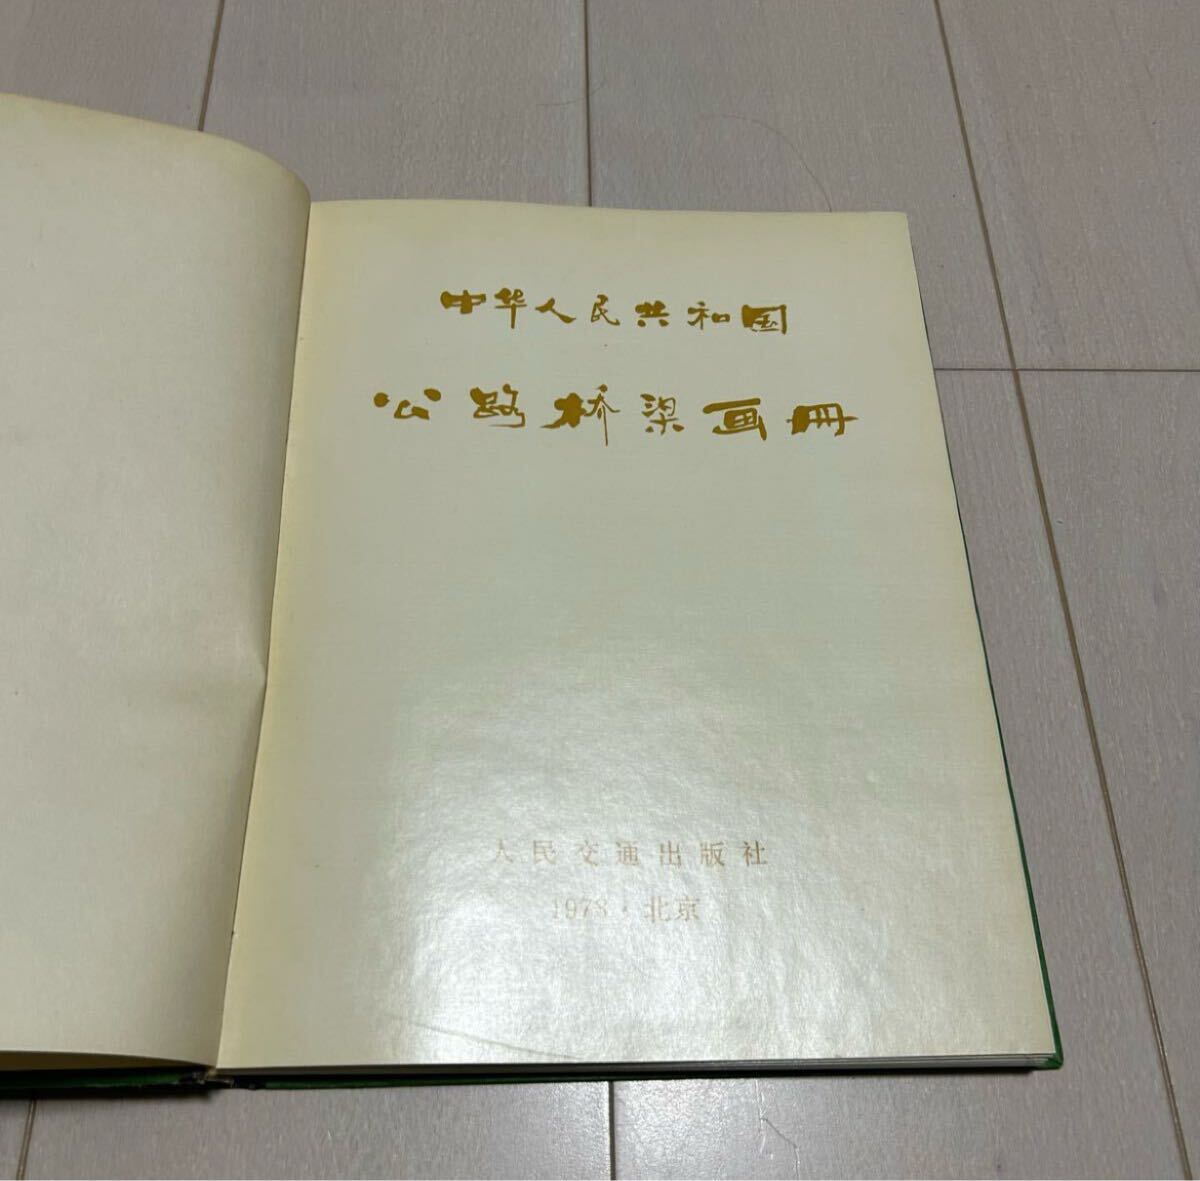 中华人民共和国
公路桥梁画册
人民交通出版社
1978·北京